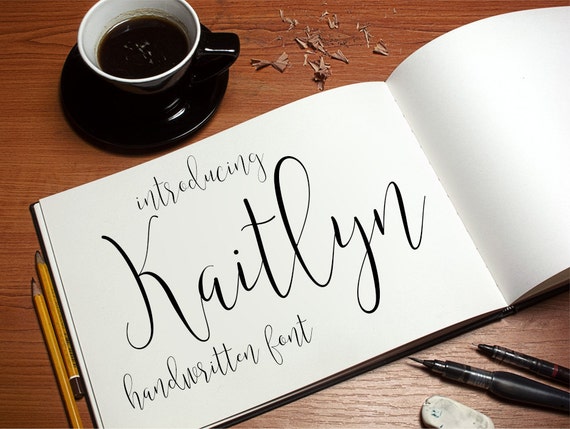 introducing
Kaitlyn
handwritten font